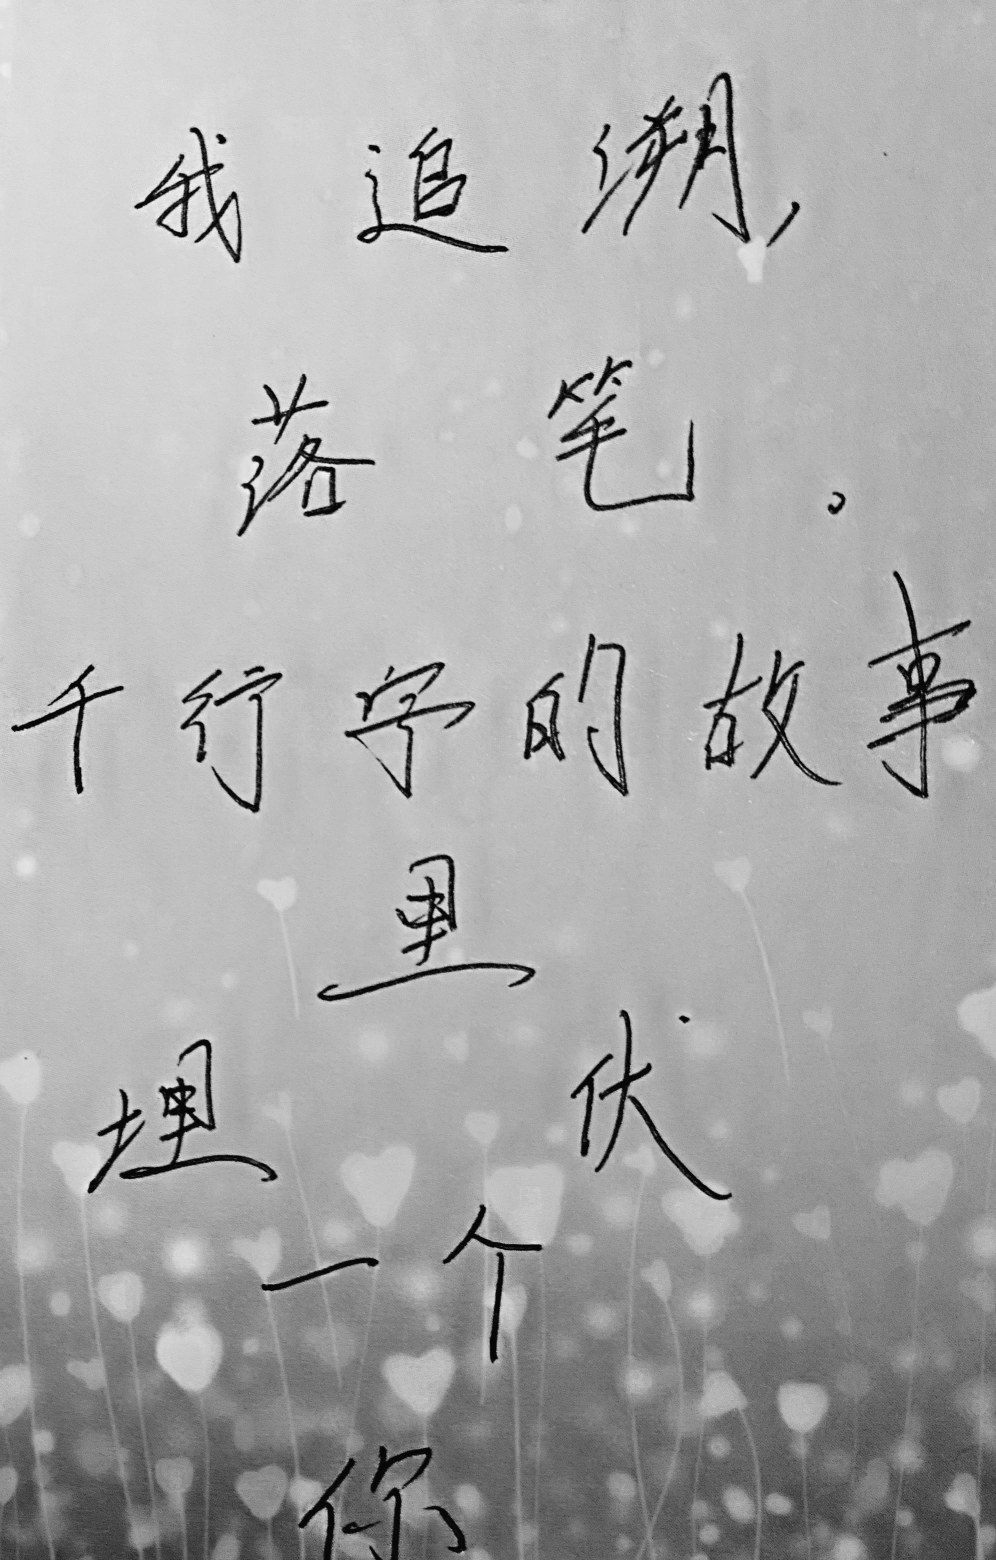 我追溯,
落笔。
千行字的故事
里
埋伏
一个
你